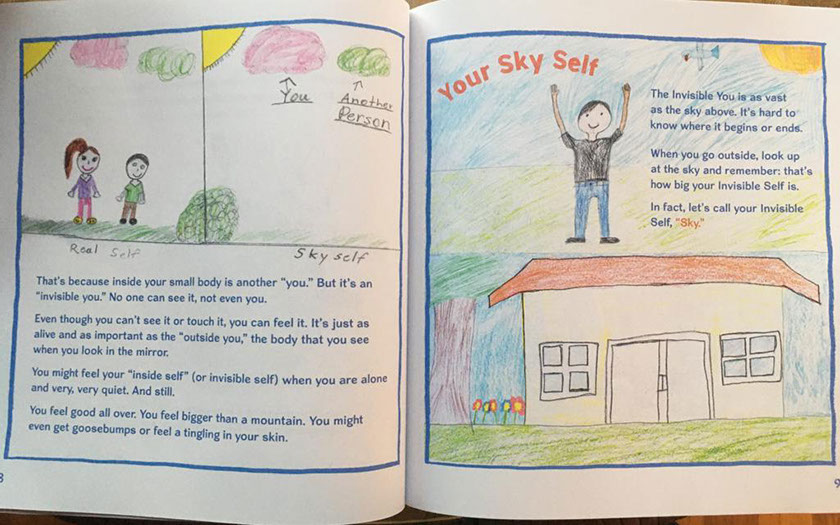 You
Another
Person
Real Self
Sky self
That's because inside your small body is another "you." But it's an
"invisible you." No one can see it, not even you.
Even though you can't see it or touch it, you can feel it. It's just as
alive and as important as the "outside you," the body that you see
when you look in the mirror.
You might feel your "inside self" (or invisible self) when you are alone
and very, very quiet. And still.
You feel good all over. You feel bigger than a mountain. You might
even get goosebumps or feel a tingling in your skin.
8
Your Sky Self
The Invisible You is as vast
as the sky above. It's hard to
know where it begins or ends.
When you go outside, look up
at the sky and remember: that's
how big your Invisible Self is.
In fact, let's call your Invisible
Self, "Sky."
9